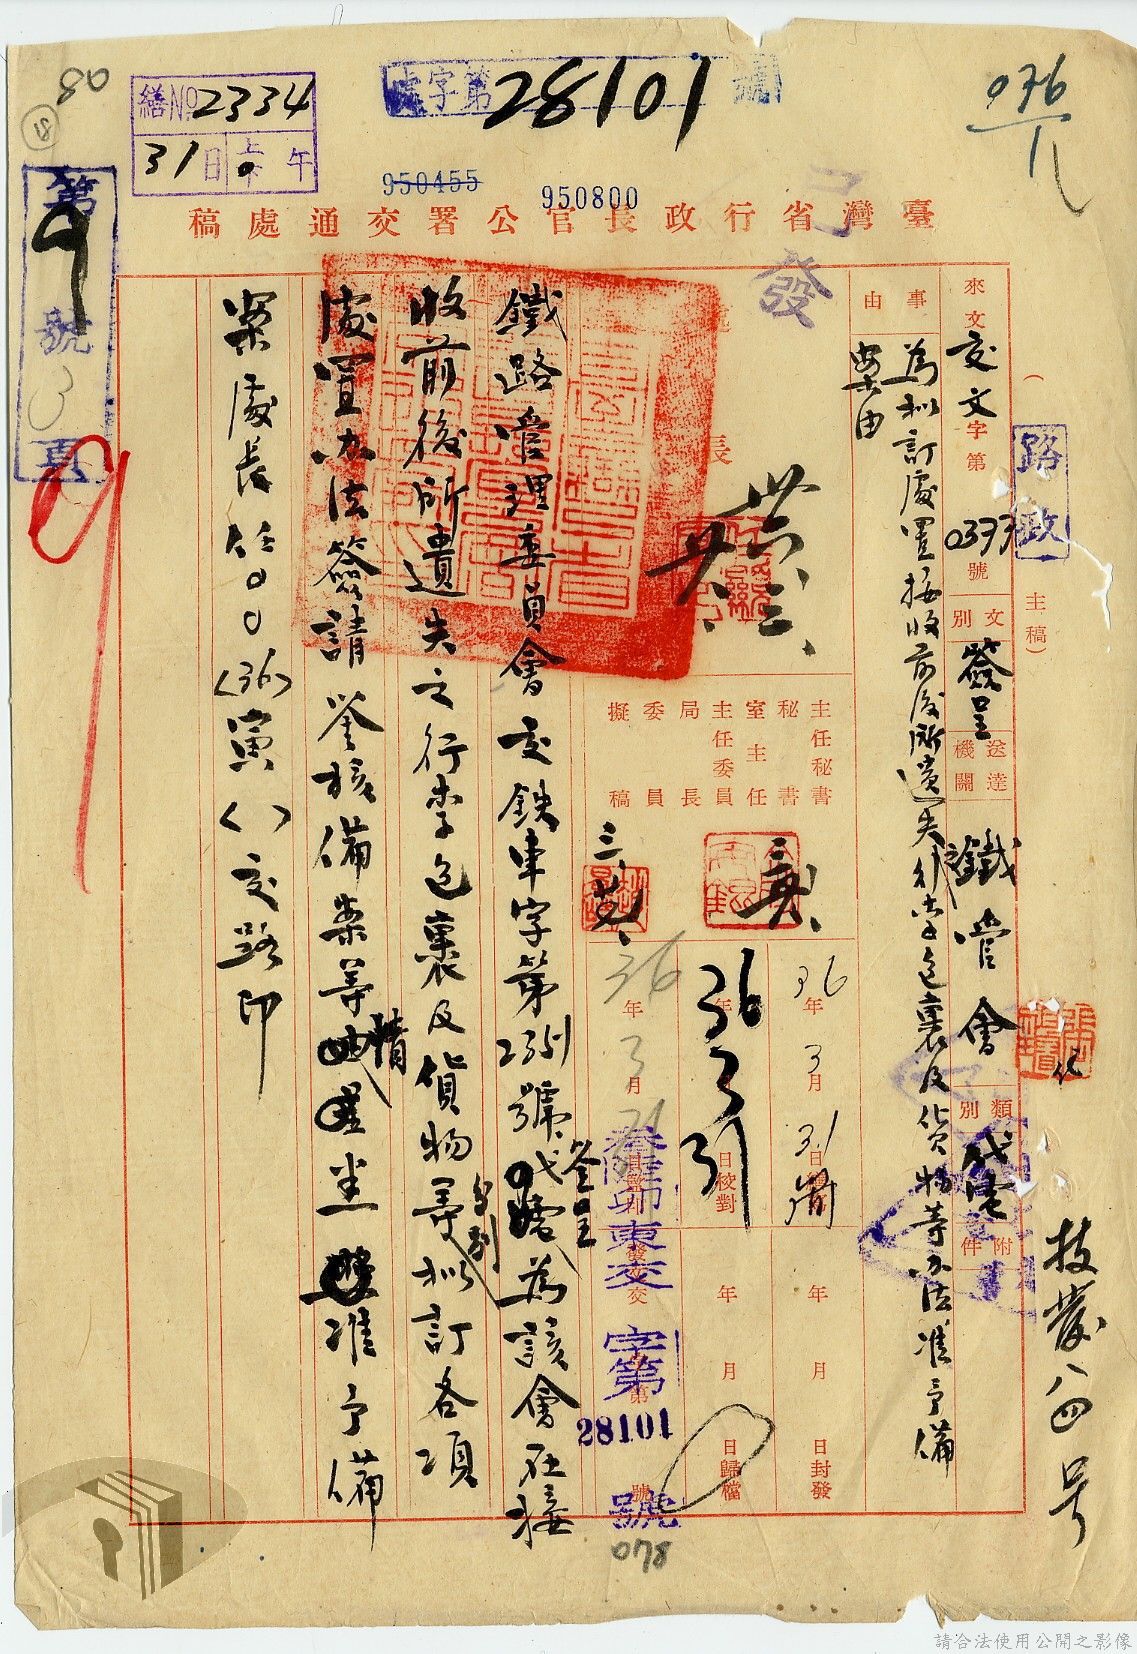 處字第28101號
繕No2334
31日 上午
950455
950800
036
臺灣省行政長官公署交通處稿
第9號
已發
(路政 主稿)
來文 交文字第0377號
文別 簽呈
送達機關 鐵管會
類別 代電
附件
事由
為擬訂處置接收前後所遺失行李包裹及貨物等办法准予備
案由
長
主任秘書
秘書
室主任
主任委員
局長
委員
擬稿
36年3月31日
36年3月31日校對
36年3月
年月日封發
年月日歸檔
叁陸卯東交字第28101號
078
技發八四号
鐵路管理委員會交鉄車字第2351號簽呈為該會在接
收前後所遺失之行李包裹及貨物等分別拟訂各項
處置办法簽請鉴核備案等情
准予備
案處長任〇〇(36)寅()交路印
請合法使用公開之影像